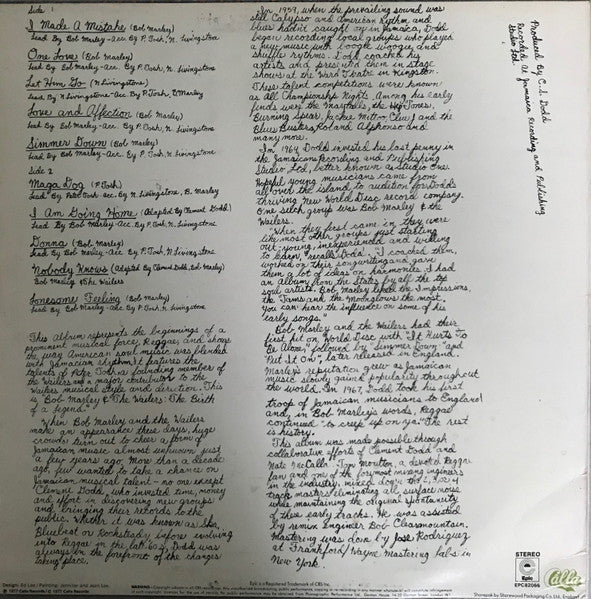 Side 1
I Made A Mistake (Bob Marley)
Lead By Bob Marley-Acc. By P. Tosh, N. Livingstone
One Love (Bob Marley)
Lead By Bob Marley-Acc. By P. Tosh, N. Livingstone
Let Him Go (N. Livingstone)
Lead By N. Livingstone-Acc. By P. Tosh, B. Marley
Love and Affection (Bob Marley)
Lead By Bob Marley-Acc. By P. Tosh, N. Livingstone
Simmer Down (Bob Marley)
Lead By Bob Marley-Acc. By P. Tosh, N. Livingstone
Side 2
Maga Dog (P. Tosh)
Lead By Peter Tosh-acc. By N. Livingstone, B. Marley
I Am Going Home (Adapted By Clement Dodd)
Lead By Bob Marley-Acc. By P. Tosh, N. Livingstone
Donna (Bob Marley)
Lead By Bob Marley-Acc. By P. Tosh, N. Livingstone
Nobody Knows (Adapted By Clement Dodd, Bob Marley)
Bob Marley & The Wailers
Lonesome Feeling (Bob Marley)
Lead By Bob Marley-Acc. By P. Tosh, N. Livingstone
This album represents the beginnings of a
prominent musical force, Reggae, and shows
the way American soul music was blended
with Jamaican rhythm. It features the
talents of Peter Tosh a founding member of
the Wailers and a major contributor to the
Wailers musical style and direction. This
is "Bob Marley & The Wailers: The Birth
of a legend."
When Bob Marley and the Wailers
make an appearance these days, huge
crowds turn out to cheer a form of
Jamaican music almost unknown just
a few years ago. More than a decade
ago, few wanted to take a chance on
Jamaican musical talent - no one except
Clement Dodd, who invested time, money
and effort in discovering new groups
and bringing their records to the
public. Whether it was known as Ska,
Bluebeat or Rocksteady before evolving
into Reggae in the late 60's, Dodd was
always on the forefront of the changes
taking place.
In 1959, when the prevailing sound was
still Calypso and American rhythm, and
blues hadn't caught on in Jamaica, Dodd
began recording local groups who played
a new music with boogie woogie, and
shuffle rythms. Dodd coached his
artists and presented them in stage
shows at the Ward Theatre in Kingston.
These talent competitions were known
as All Championship Nights. Among his early
finds were the Maytalls, the Hep Tones,
Burning Spear, Jackie Mittoo, Clue J and the
Blues Busters, Roland Alphonso and
many more.
In 1964, Dodd invested his last penny in
the Jamaican Recording and Publishing
Studio Ltd, better known as Studio One.
Hopeful young musicians came from
all over the island to audition for Dodd's
thriving New World Disc record company.
One such group was Bob Marley & the
Wailers.
"When they first came in they were
like most other groups just starting
out; young, inexperienced and willing
to learn," recalls Dodd. "I coached them,
worked on their songwriting and gave
them a lot of ideas on harmonies. I had
an album from the States by all the top
soul artists. Bob Marley liked the Impressions,
the Tams and the Moonglows the most.
You can hear the influence on some of his
early songs."
Bob Marley and the Wailers had their
first hit on World Disc with "It Hurts To
Be Alone," followed by "Simmer Down" and
"Put It On", later released in England.
Marley's reputation grew as Jamaican
music slowly gained popularity throughout
the world. In 1967, Dodd took his first
troop of Jamaican musicians to England
and, in Bob Marley's words, Reggae
continued "to creep up on ya." The rest
is history.
This album was made possible through
collaborative efforts of Clement Dodd and
Nate McCalla. Tom Moulton, a devoted Reggae
fan and one of the foremost mixing engineers
in the industry, mixed down the 2, 3 or 4
track masters eliminating all surface noise
while maintaining the original spontaneity
of these early tracks. He was assisted
by remix Engineer Bob Clearmountain.
Mastering was done by José Rodriguez
at Frankford/Wayne Mastering Labs in
New York.
Produced By C.S. Dodd
Recorded At Jamaica Recording and Publishing
Studio Ltd.
STEREO
Epic
EPC82066
Calla
Design: Ed Lee / Painting: Jennifer and Joan Lee
℗ 1977 Calla Records/© 1977 Calla Records
Epic is a Registered Trademark of CBS Inc.
Sleevepak by Shorewood Packaging Co. Ltd., England